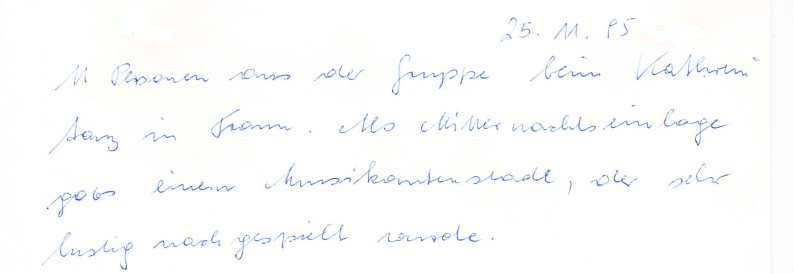 25. 11. 95
11 Personen aus der Gruppe beim Kathrein
tanz in Traun. Als Mitternachtseinlage
gabs einen Musikantenstadl, der sehr
lustig nachgespielt wurde.